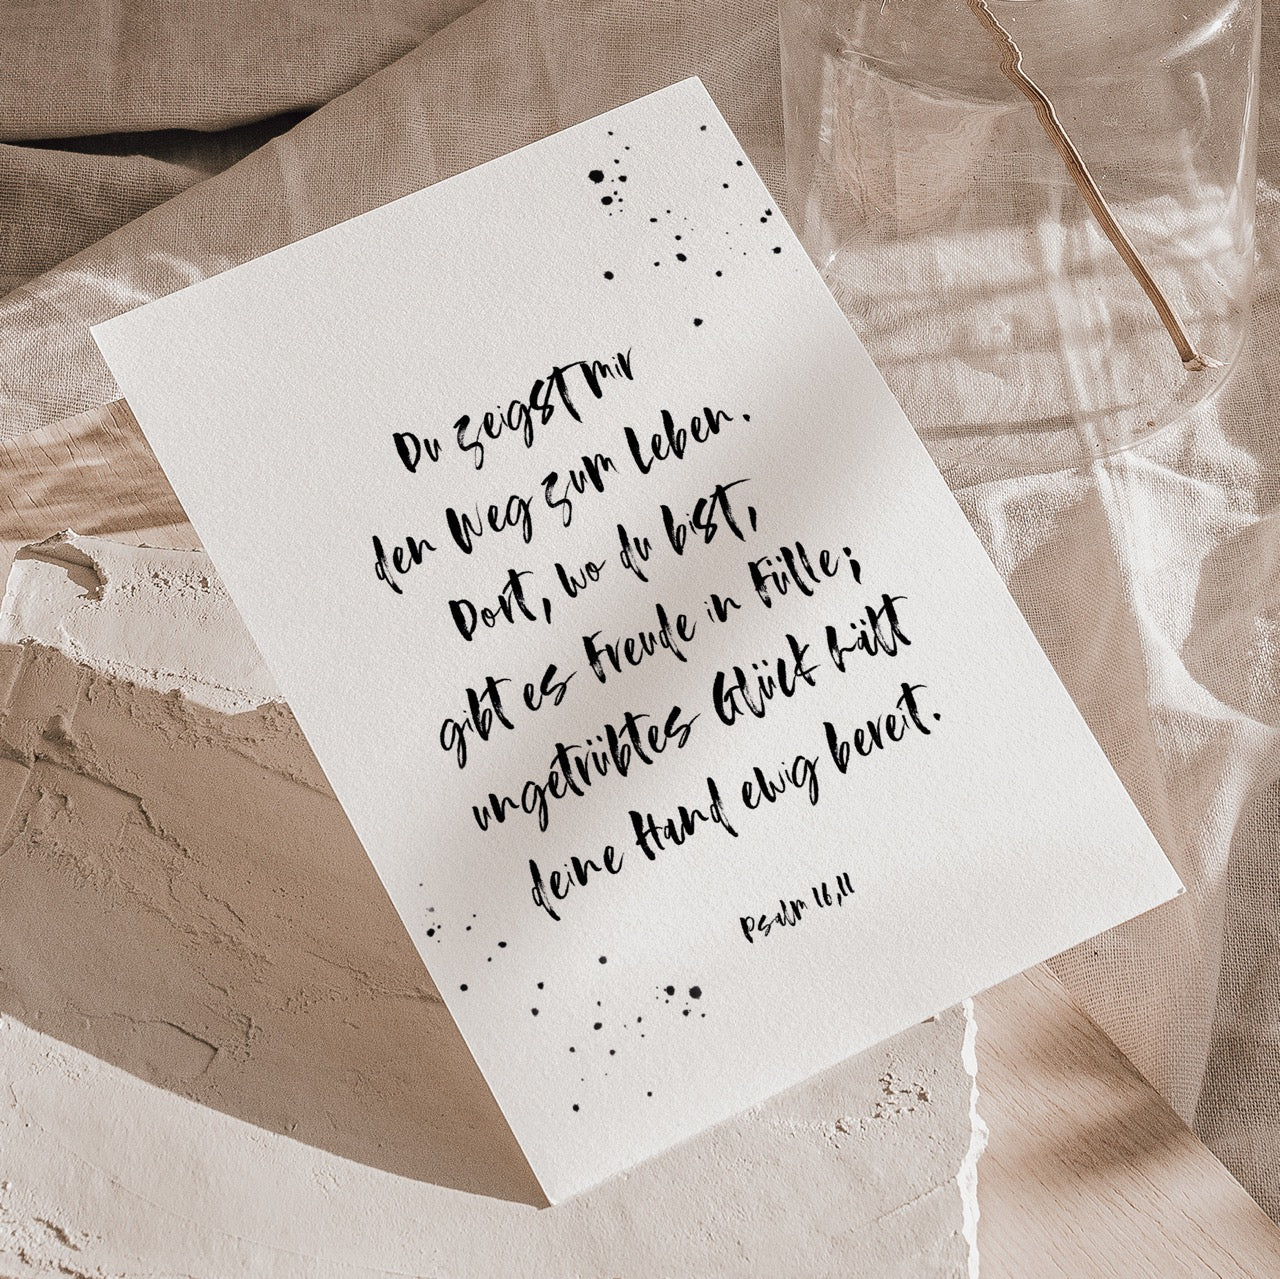 Du zeigst mir
den Weg zum Leben.
Dort, wo du bist,
gibt es Freude in Fülle;
ungetrübtes Glück hält
deine Hand ewig bereit.
Psalm 16,11